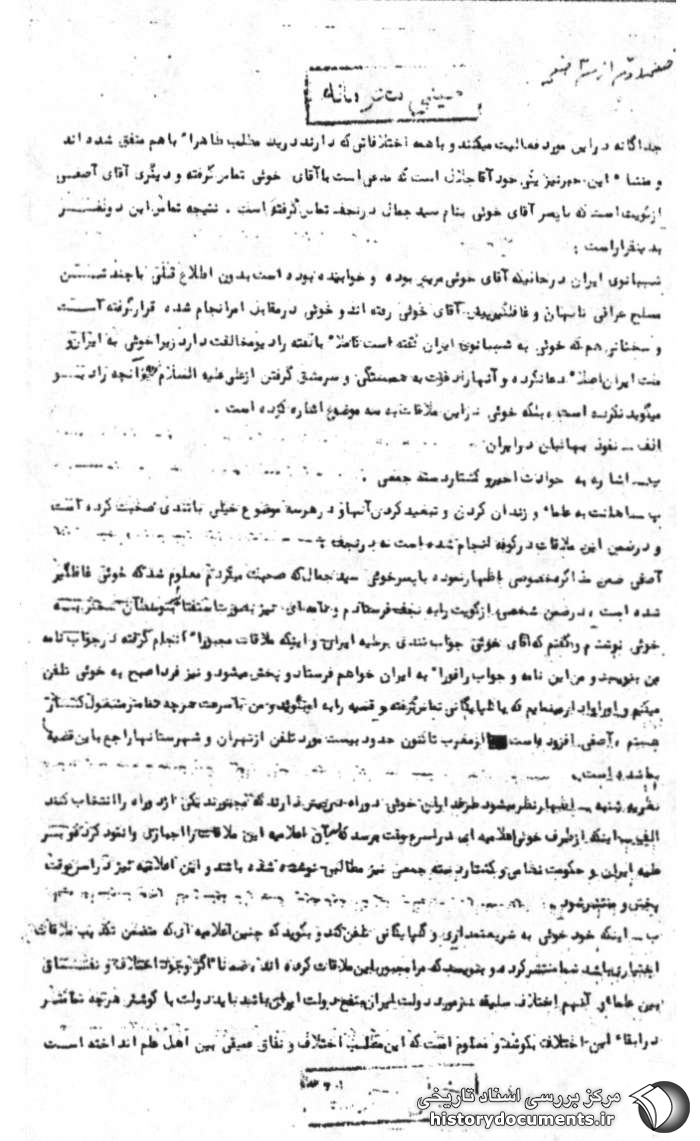 صفحه دوم از سه صفحه
خیلی محرمانه
جداگانه در این مورد فعالیت میکنند و با همه اختلافاتی که دارند در ید مطلب ظاهرا" با هم متفق شده اند
و منشاء این خبر نیز یکی خود آقا جلال است که مدعی است با آقای خوئی تماس گرفته و دیگری آقای آصفی
از کویت است که با پسر آقای خوئی بنام سید جمال در نجف تماس گرفته است . نتیجه تماس این دو نفر
بدینقرار است :
شهبانوی ایران در حالیکه آقای خوئی مریض بوده و خوابیده بوده است بدون اطلاع قبلی با چند تن
مسلح عراقی ناگهان و غافلگیر پیش آقای خوئی رفته اند و خوئی در مقابل امر انجام شده قرار گرفته است
و سخنانی هم که خوئی به شهبانوی ایران گفته است کاملا" با گفته رادیو مخالفت دارد زیرا خوئی به ایران و
ملت ایران اصلا" دعا نکرده و آنها را دعوت به همبستگی و سرمشق گرفتن از علی علیه السلام و آنچه رادیو
میگوید نکرده است ، بلکه خوئی در این ملاقات به سه موضوع اشاره کرده است .
الف ـ نفوذ بهائیان در ایران
ب ـ اشاره به حوادث اخیر و کشتار دسته جمعی .
پ ـ اهانت به علماء و زندان کردن و تبعید کردن آنها و در هر سه موضوع خیلی با تندی صحبت کرده است
و در ضمن این ملاقات در کوفه انجام شده است نه در نجف
آصفی ضمن مذاکره خصوصی اظهار نموده با پسر خوئی سید جمال که صحبت میکردم معلوم شد که خوئی غافلگیر
شده است ، در ضمن شخصی از کویت را به نجف فرستادم و نامه ای نیز بصورت استفتاء
خوئی نوشتم و گفتم که آقای خوئی جواب تندی بر علیه ایران و اینکه ملاقات مجبورا" انجام گرفته در جواب نامه
من بنویسد و من این نامه و جواب را فورا" به ایران خواهم فرستاد و پخش میشود و نیز فردا صبح به خوئی تلفن
میکنم و او را وادار مینمایم که با گلپایگانی تماس گرفته و قضیه را به او بگوید و من با سرعت هر چه تمامتر مشغول کار
هستم ، آصفی افزود است از مغرب تا کنون حدود بیست مورد تلفن از تهران و شهرستانها راجع باین قضیه
بما شده است .
نظریه شنبه ـ اظهار نظر میشود طرفداران خوئی دو راه در پیش دارند که مجبورند یکی از دو راه را انتخاب کنند
الف ـ اینکه از طرف خوئی اعلامیه ایی در اسرع وقت برسد که آن اعلامیه این ملاقات را اجباری وانمود کرده و بر
علیه ایران و حکومت نظامی و کشتار دسته جمعی نیز مطالبی نوشته شده باشد و این اعلامیه نیز در اسرع وقت
پخش و منتشر شود .
ب ـ اینکه خود خوئی به شریعتمداری و گلپایگانی تلفن کند و بگوید که چنین اعلامیه ای که متضمن تکذیب ملاقات
اختیاری باشد شما منتشر کرده و بنویسد که مرا مجبور باین ملاقات کرده اند ، ضمنا" اگر وجود اختلاف و
بین علماء و آنهم اختلاف سلیقه در مورد دولت ایران بنفع دولت ایران باشد باید دولت با کوشش هر چه تمامتر
در ابقاء این اختلاف بکوشد و معلوم است که این مطلب اختلاف و نفاق عمیقی بین اهل علم انداخته است
مرکز بررسی اسناد تاریخی
historydocuments.ir